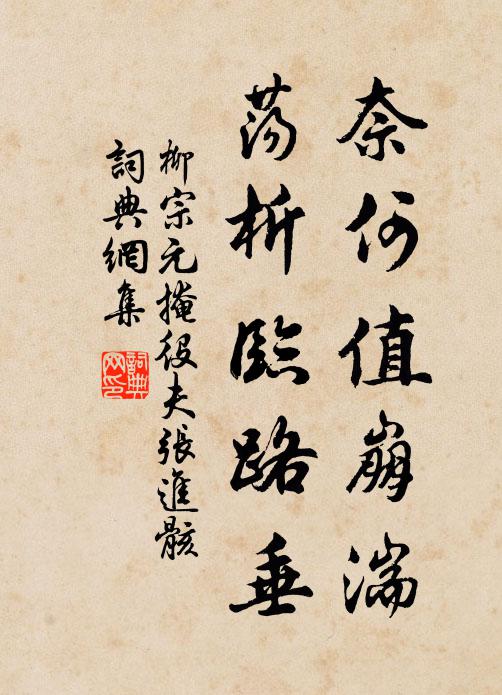 奈何值崩湍
荡析臨路垂
柳宗元掩役夫張進骸
詞典網集
詞典網印